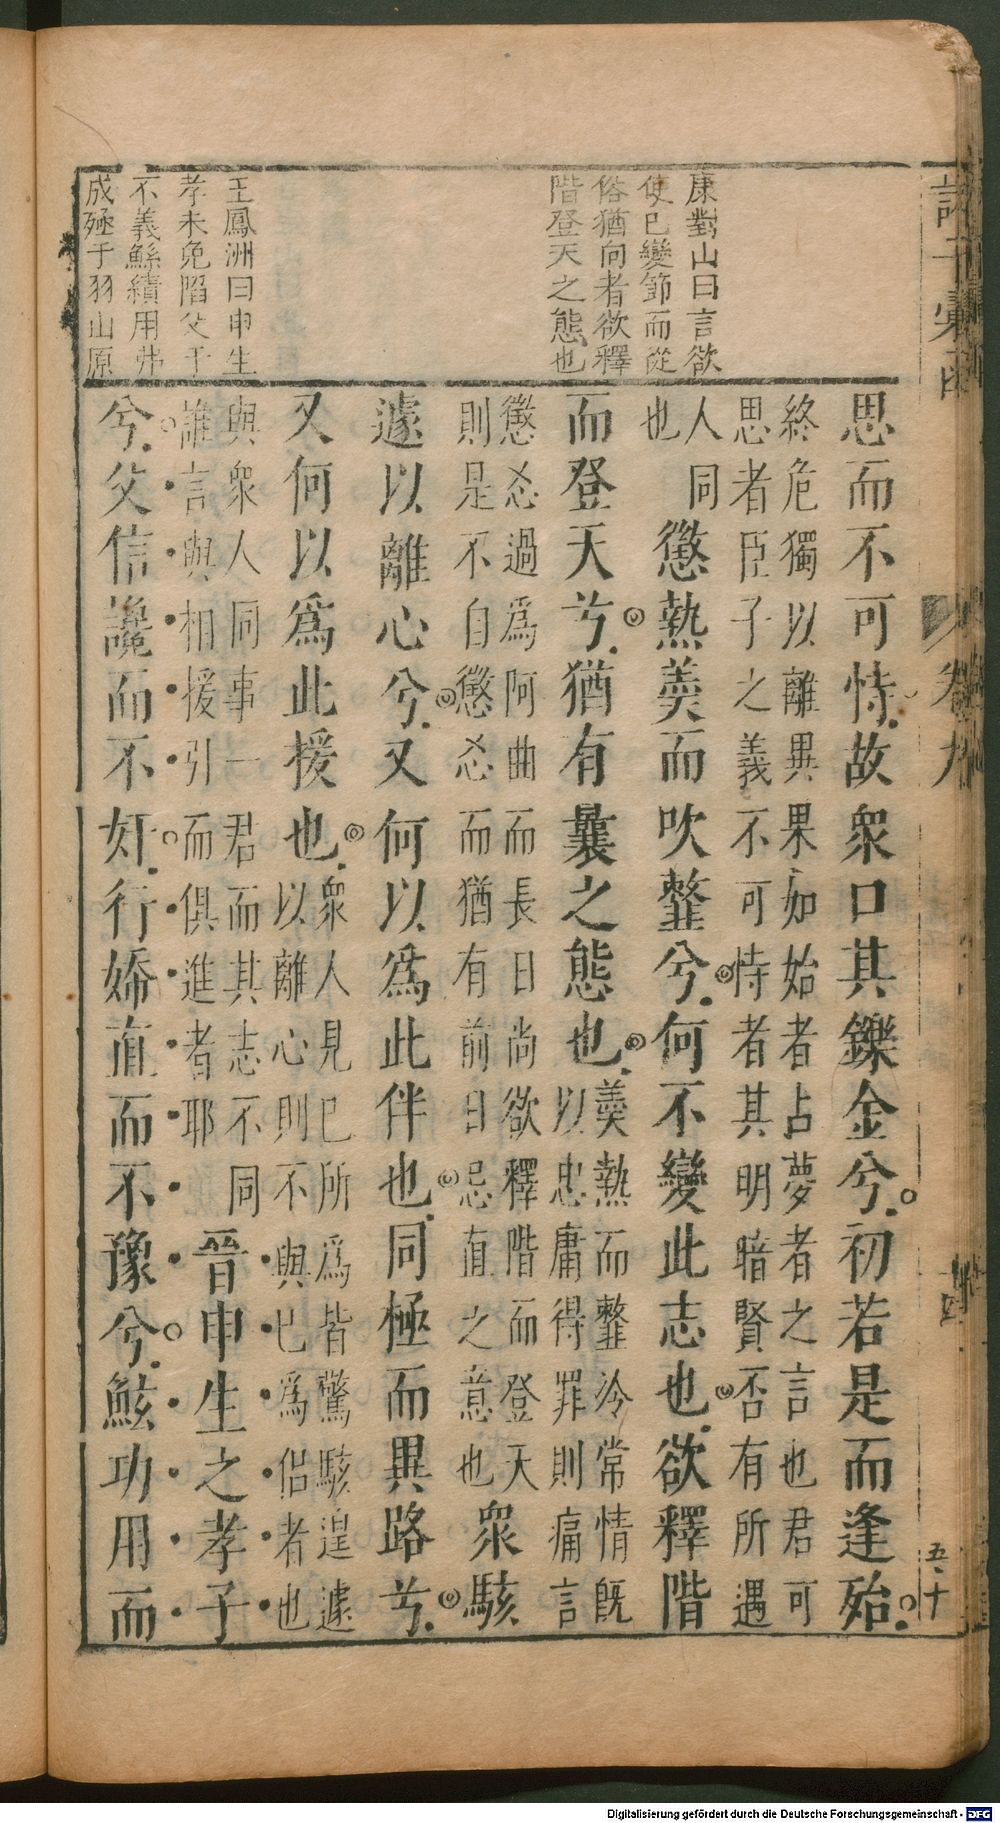 康對山曰言欲
使已變節而從
俗猶向者欲釋
階登天之態也
王鳳洲曰申生
孝未免陷父于
不義鯀績用弗
成殛于羽山原
思而不可恃故衆口其鑠金兮初若是而逢殆
終危獨以離異果如始者占夢者之言也君可
思者臣子之義不可恃者其明暗賢否有所遇
人同
也
懲熱羮而吹𩐎兮何不變此志也欲釋階
而登天兮猶有曩之態也
羮熱而𩐎冷常情旣
以忠庸得罪則痛言
懲忍過爲阿曲而長日尚欲釋階而登天
則是不自懲忍而猶有前日忌直之意也
衆駭
遽以離心兮又何以爲此伴也同極而異路兮
又何以爲此援也
衆人見已所爲皆驚駭遑遽
以離心則不與已爲侣者也
與衆人同事一君而其志不同
誰言與相援引而俱進者耶
晉申生之孝子
兮父信讒而不奸行婞直而不豫兮鮌功用而
卷九
五十
Digitalisierung gefördert durch die Deutsche Forschungsgemeinschaft - DFG